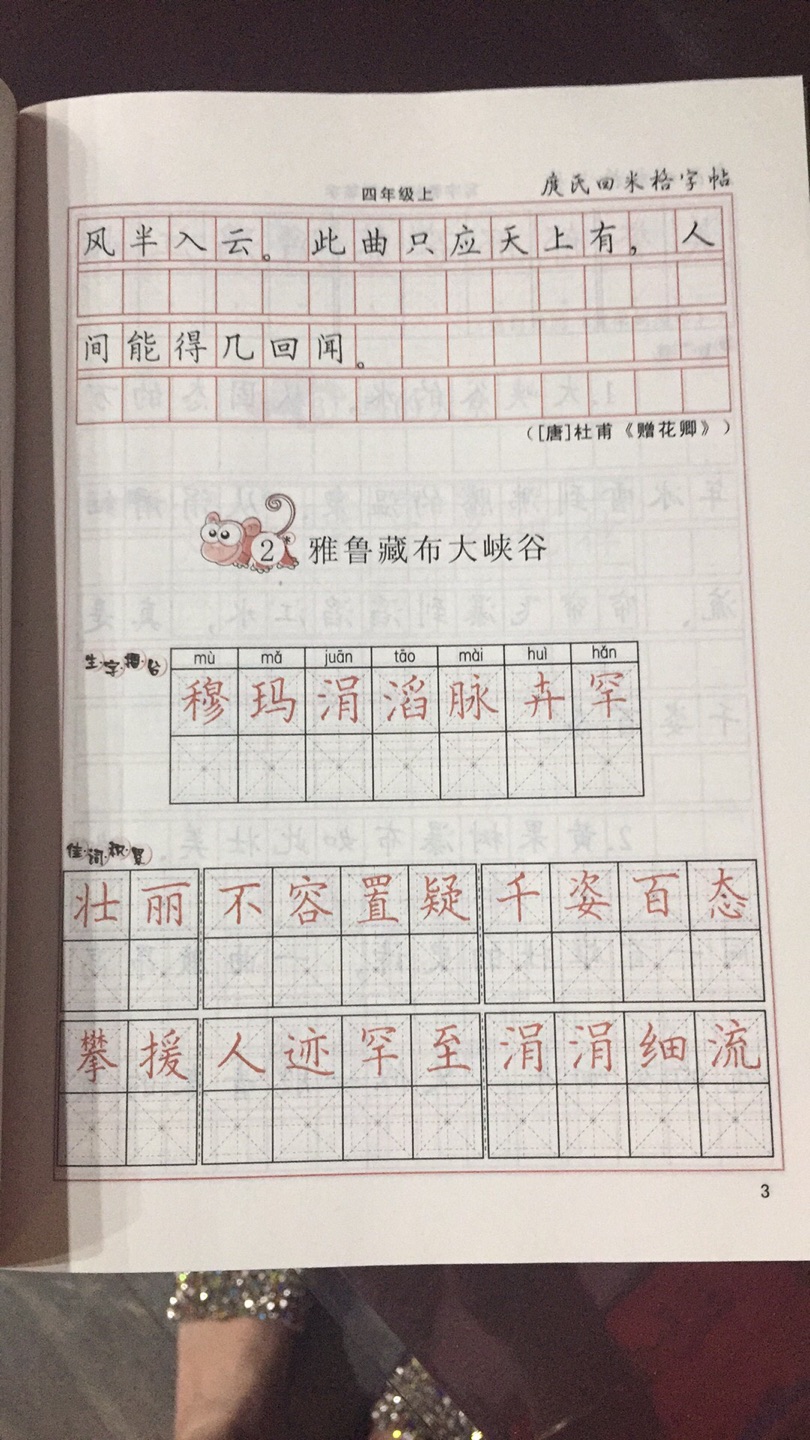 四年级上 庹氏回米格字帖
风半入云。此曲只应天上有,人
间能得几回闻。
([唐]杜甫《赠花卿》)
2 雅鲁藏布大峡谷
生字摆台
mù mǎ juān tāo mài huì hǎn
穆玛涓滔脉卉罕
佳词积累
壮丽 不容置疑 千姿百态
攀援 人迹罕至 涓涓细流
3